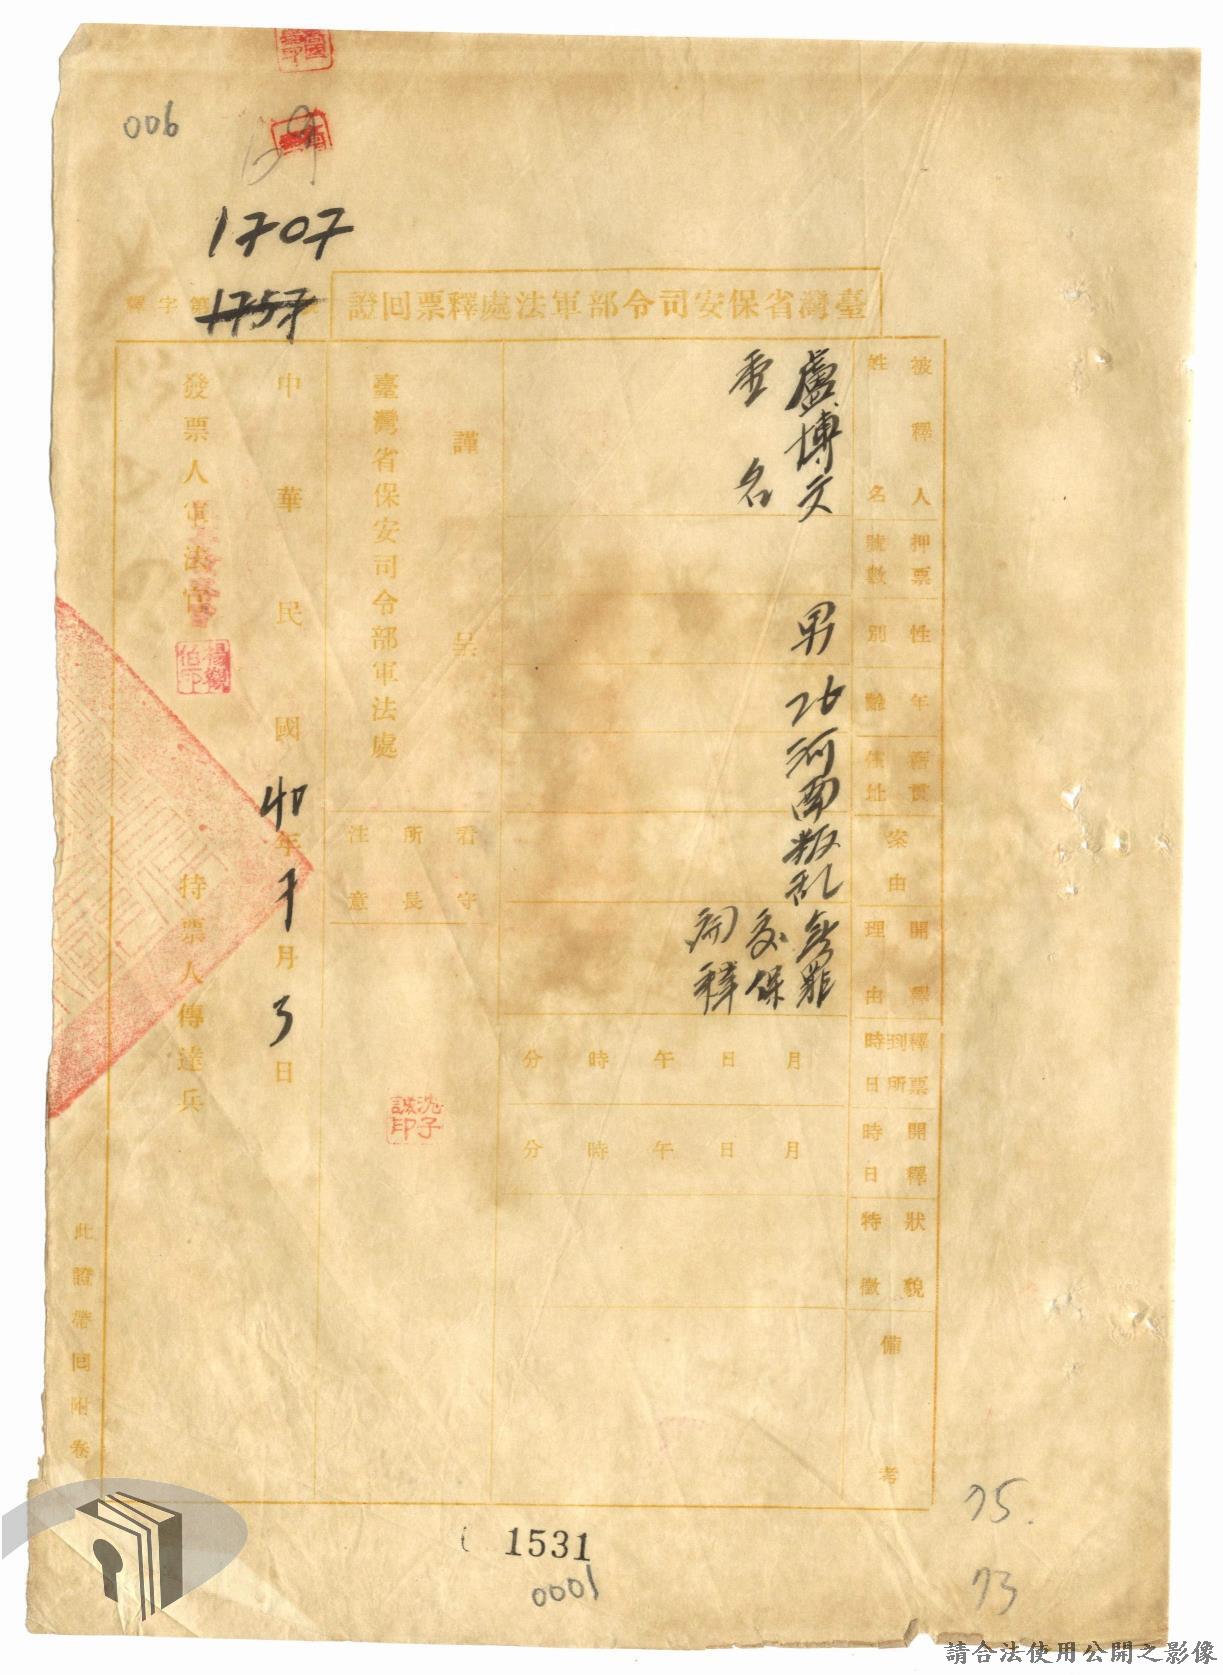 006
1707
1757
臺灣省保安司令部軍法處釋票回證
字第
被釋人姓名
盧博文
壹名
押票號數
性別
男
年齡
26
籍貫住址
河南
案由
叛乱
開釋理由
無罪
交保
開釋
釋票到所時日
月日午時分
開釋時日
月日午時分
狀貌特徵
備考
謹呈
臺灣省保安司令部軍法處
看守所長注意
沈子誠印
中華民國40年7月3日
發票人軍法官
持票人傳達兵
此證帶回附卷
1531
0001
75.
73
請合法使用公開之影像